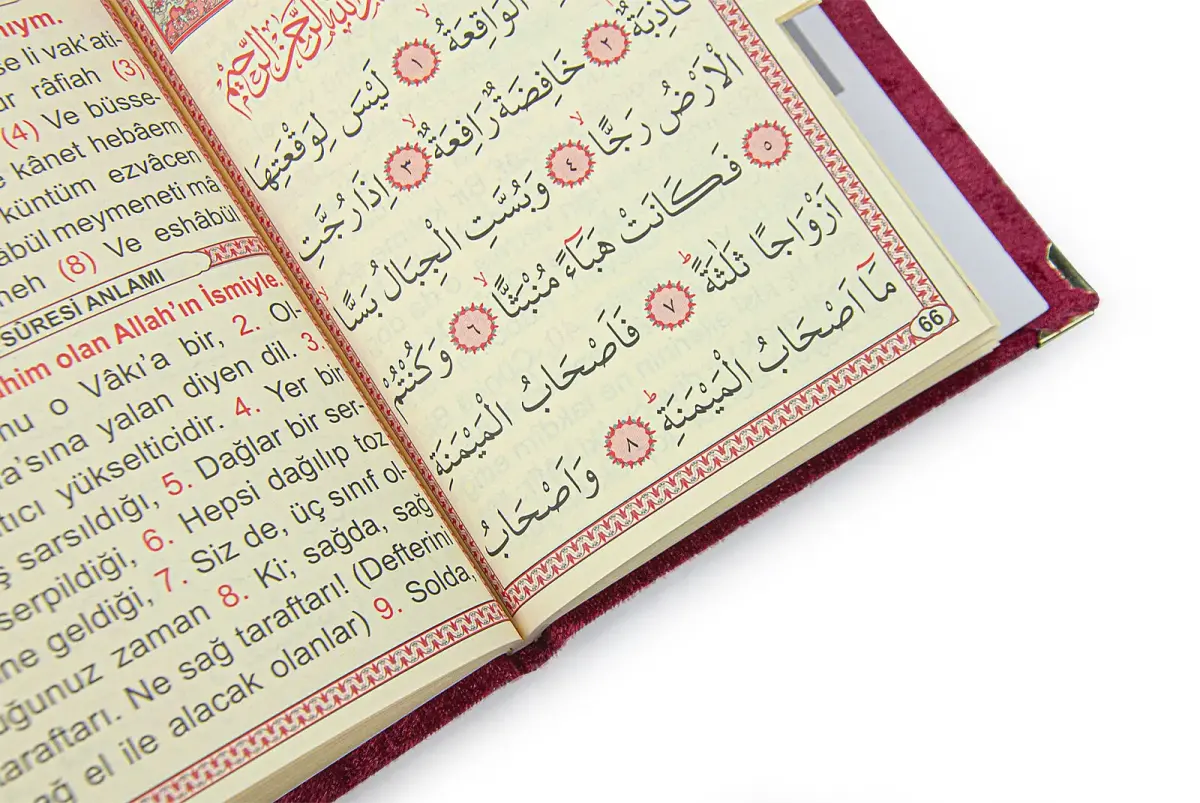 الرَّحْمٰنِ الرَّحِيمِ
الْوَاقِعَةُ ١ لَيْسَ لِوَقْعَتِهَا
كَاذِبَةٌ ٢ خَافِضَةٌ رَافِعَةٌ ٣ اِذَا رُجَّتِ
الْاَرْضُ رَجًّا ٤ وَبُسَّتِ الْجِبَالُ بَسًّا
٥ فَكَانَتْ هَبَٓاءً مُنْبَثًّا ٦ وَكُنْتُمْ
اَزْوَاجًا ثَلٰثَةً ٧ فَاَصْحَابُ الْمَيْمَنَةِ
مَٓا اَصْحَابُ الْمَيْمَنَةِ ٨ وَاَصْحَابُ
66
se li vak'ati-
râfiah (3)
(4) Ve büsse-
kânet hebâem
küntüm ezvâcen
meymeneti mâ
(8) Ve eshâbül
SÛRESİ ANLAMI
olan Allah'ın İsmiyle.
o Vâkı'a bir, 2. Ol-
yalan diyen dil. 3.
yükselticidir. 4. Yer bir
sarsıldığı, 5. Dağlar bir ser-
serpildiği, 6. Hepsi dağılıp toz
geldiği, 7. Siz de, üç sınıf ol-
zaman 8. Ki; sağda, sağ
taraftarı. Ne sağ taraftarı! (Defterini
el ile alacak olanlar) 9. Solda,